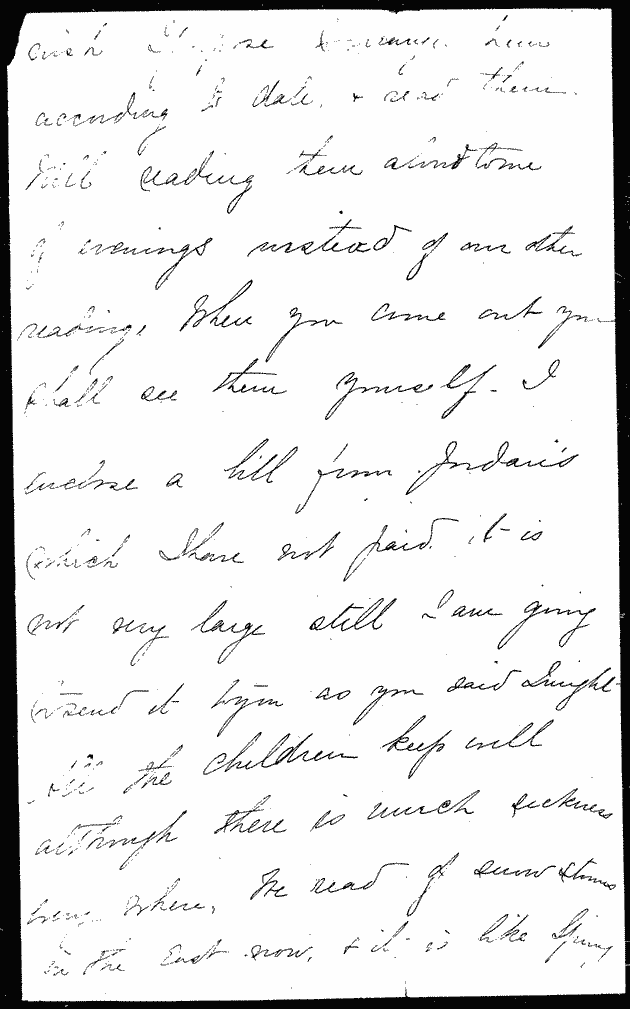 wish I propose to arrange them
according to date, & read them.
Will reading them aloud to me
of evenings instead of our other
reading. When you come out you
shall see them yourself - I
enclose a bill from Jordan's
which I have not paid. it is
not very large still I am going
to send it to you as you said I might
All the children keep well
although there is much sickness
every where, We read of snow storms
in the East now, & it is like Spring